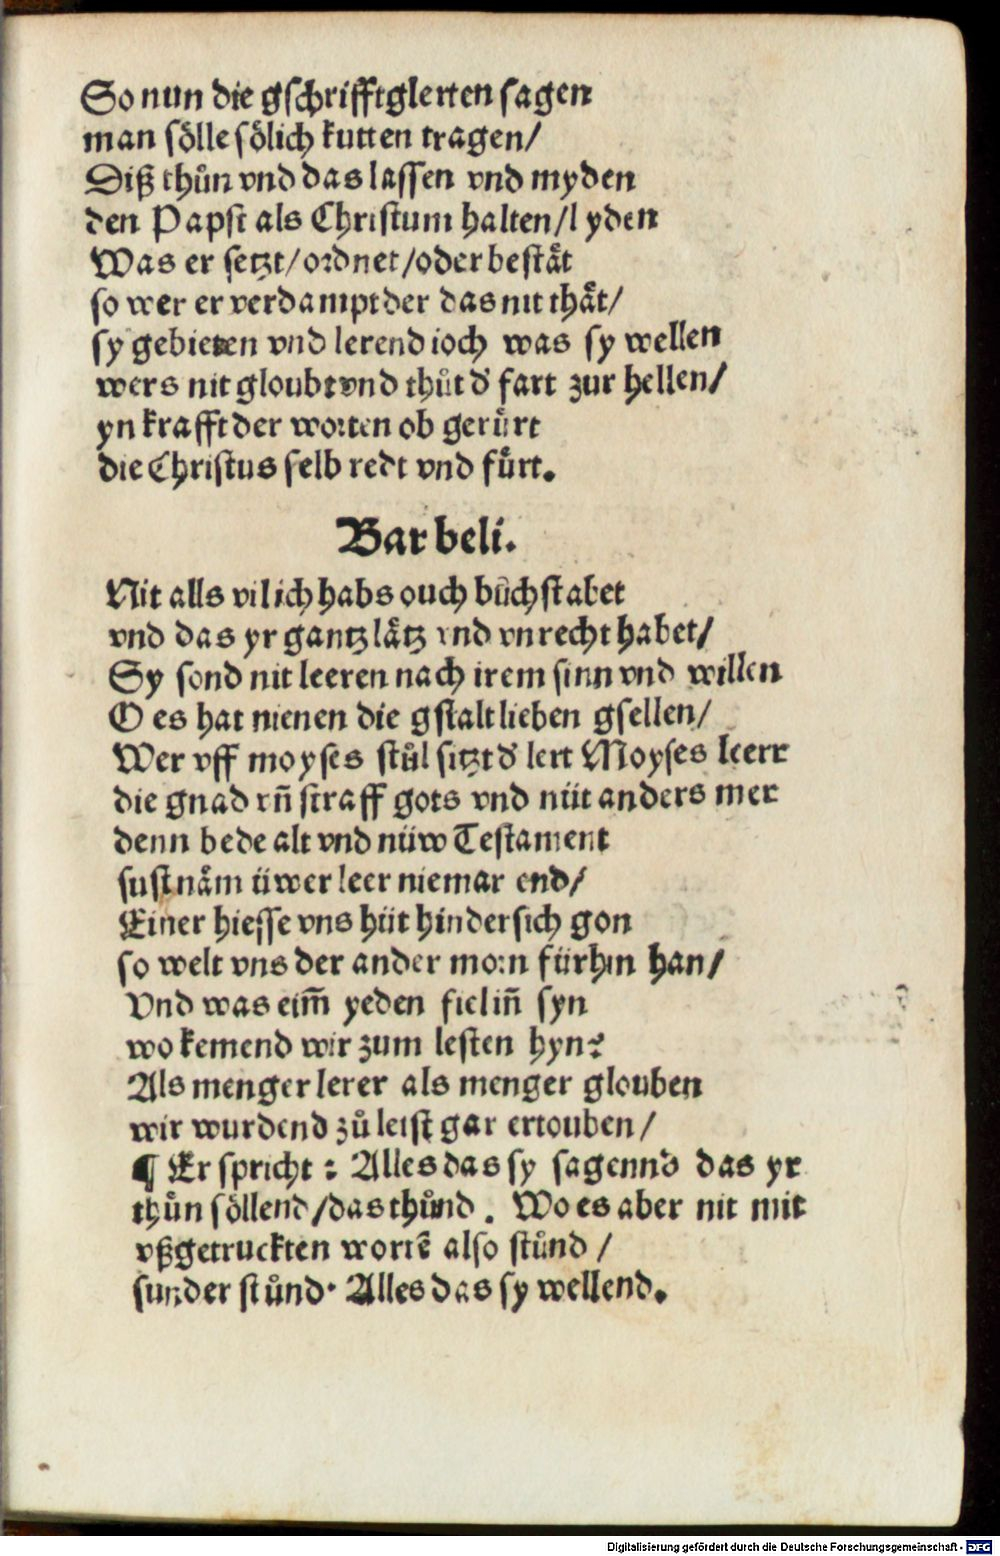 So nun die gschrifftglerten sagen
man soͤlle soͤlich kutten tragen/
Diß thuͦn vnd das lassen vnd myden
den Papst als Christum halten/lyden
Was er setzt/ordnet/oder bestaͤt
so wer er verdampt der das nit thaͤt/
sy gebieten vnd lerend ioch was sy wellen
wers nit gloubt vnd thuͦt d' fart zur hellen/
yn krafft der worten ob geruͤrt
die Christus selb redt vnd fuͤrt.
Barbeli.
Nit alls vil ich habs ouch buͦchstabet
vnd das yr gantz laͤtz vnd vnrecht habet/
Sy sond nit leeren nach irem sinn vnd willen
O es hat nienen die gstalt lieben gsellen/
Wer vff moyses stuͦl sitzt d' lert Moyses leere
die gnad vn̄ straff gots vnd nüt anders mer
denn bede alt vnd nüw Testament
sust naͤm üwer leer niemar end/
Einer hiesse vns hüt hindersich gon
so welt vns der ander morn fürhin han/
Vnd was eim̄ yeden fiel in̄ syn
wo kemend wir zum lesten hyn?
Als menger lerer als menger glouben
wir wurdend zuͦ leist gar ertouben/
¶ Er spricht: Alles das sy sagennd das yr
thuͦn soͤllend/das thuͦnd. Wo es aber nit mit
vßgetruckten wortē also stuͦnd/
sunder stuͦnd. Alles das sy wellend.
Digitalisierung gefördert durch die Deutsche Forschungsgemeinschaft - DFG